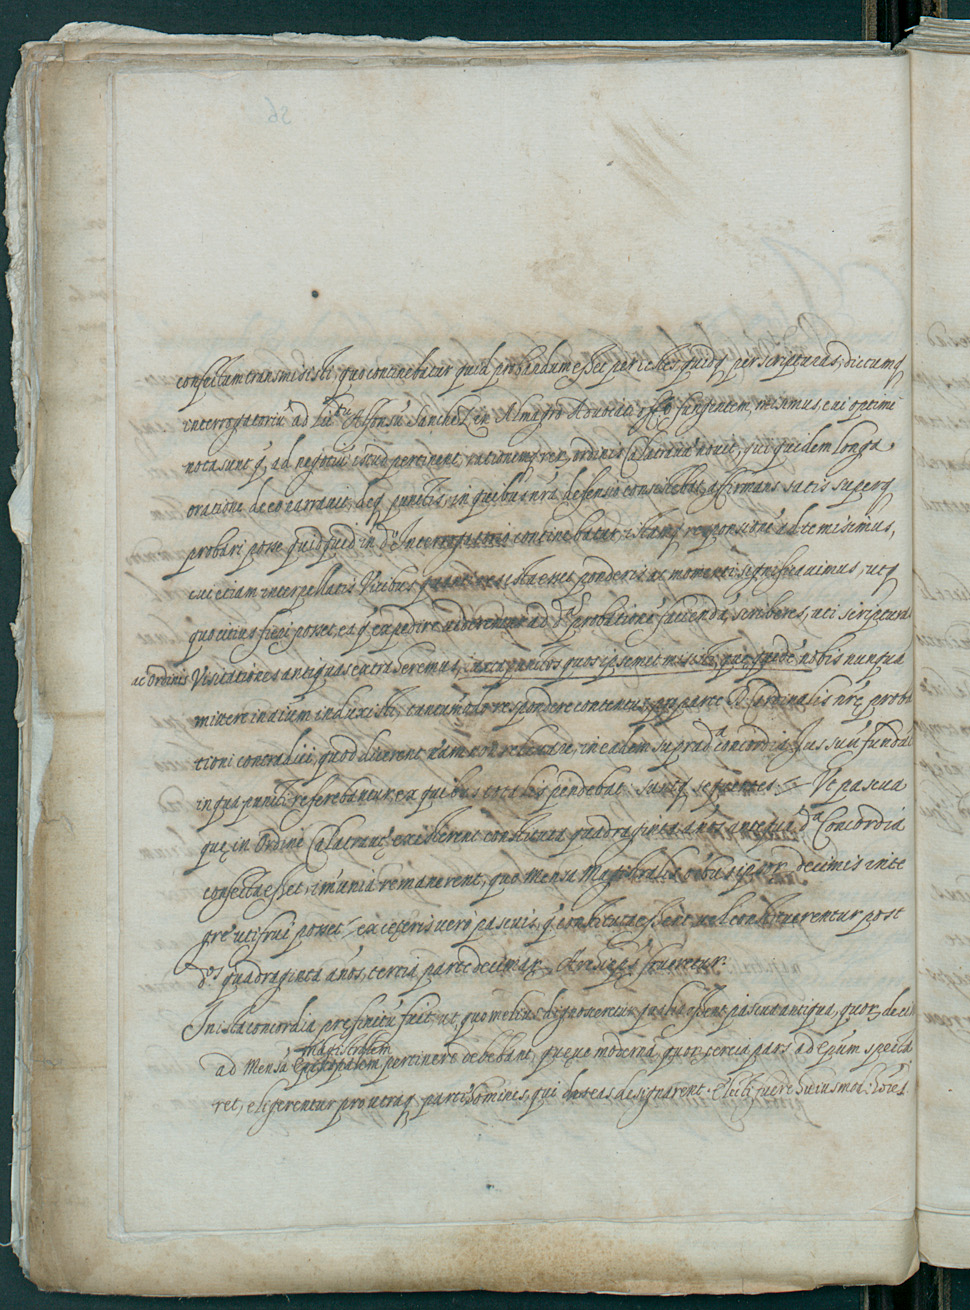 confectum transmisisti, quo continebatur quid probandum esset per testes, quidq per scripturas, dictumq
interrogatoriũ ad Alfonsũ Sanchez in Almagro fungentem, misimus, cui optimè
nota sunt q̨ ad negotiũ istud pertinent, rationemq rex, ordinis Calatravę novit, qui quidem longa
oratione de eo narravit, deq punctis, in quibus nr̃a defensio consistebat, affirmans satis superq
probari posse quidquid in dõ Interrogatorio continebatur, istamq responsionẽ ad te misimus,
cui etiam interpellatis Vicibus ista esset ponderis ac momenti significavimus, utq
quo citius fieri posset, ea q̨ expedire viderentur ad dᵃ̃ probationẽ faciendã, scriberes, uti scripturas
ac Ordinis Visitationes antiquas extraheremus, iuxta punctos quos ipsemet misisti, quę quidẽ nobis nunquã
mittere in aĩum induxisti, tantumodo respondere contentus, ex parte D. Cardinalis nr̨ę proba
tioni contradici, quod dicerent in eadem supradᵃ concordia Jus suũ fundari
in qua puncti referebantur ex quibus tota lis pendebat. suntq sequentes. Vt pascua
quę in Ordine Calatravę existerent constituta quadraginta años antequã dᵃ Concordia
confecta esset, imunia remanerent, quo Mensa Magistralis decimis inte
grè uti frui posset, ex ceteris vero pascuis, q̨ constituta essent, vel constituerentur post
dᵒˢ quadraginta años, tertia parte decimarũ frueretur.
In ista concordia prefinitũ fuit ut, quo melius dignoceretur quę essent pascua antiqua, quorũ decimę
ad Mensã Episcopalem magistralem pertinere debebant, quęue moderna, quorũ tertia pars ad Epũm specta
ret, eligerentur pro utraq parte homines, qui designarent. Electi fuere huiusmodi hoĩes